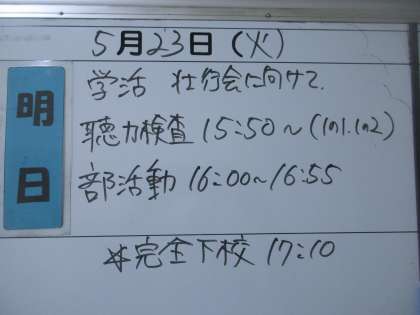 5月23日(火)
明日
学活 壮行会に向けて.
聴力検査 15:50~(1の1.1の2)
部活動 16:00~16:55
☆完全下校 17:10